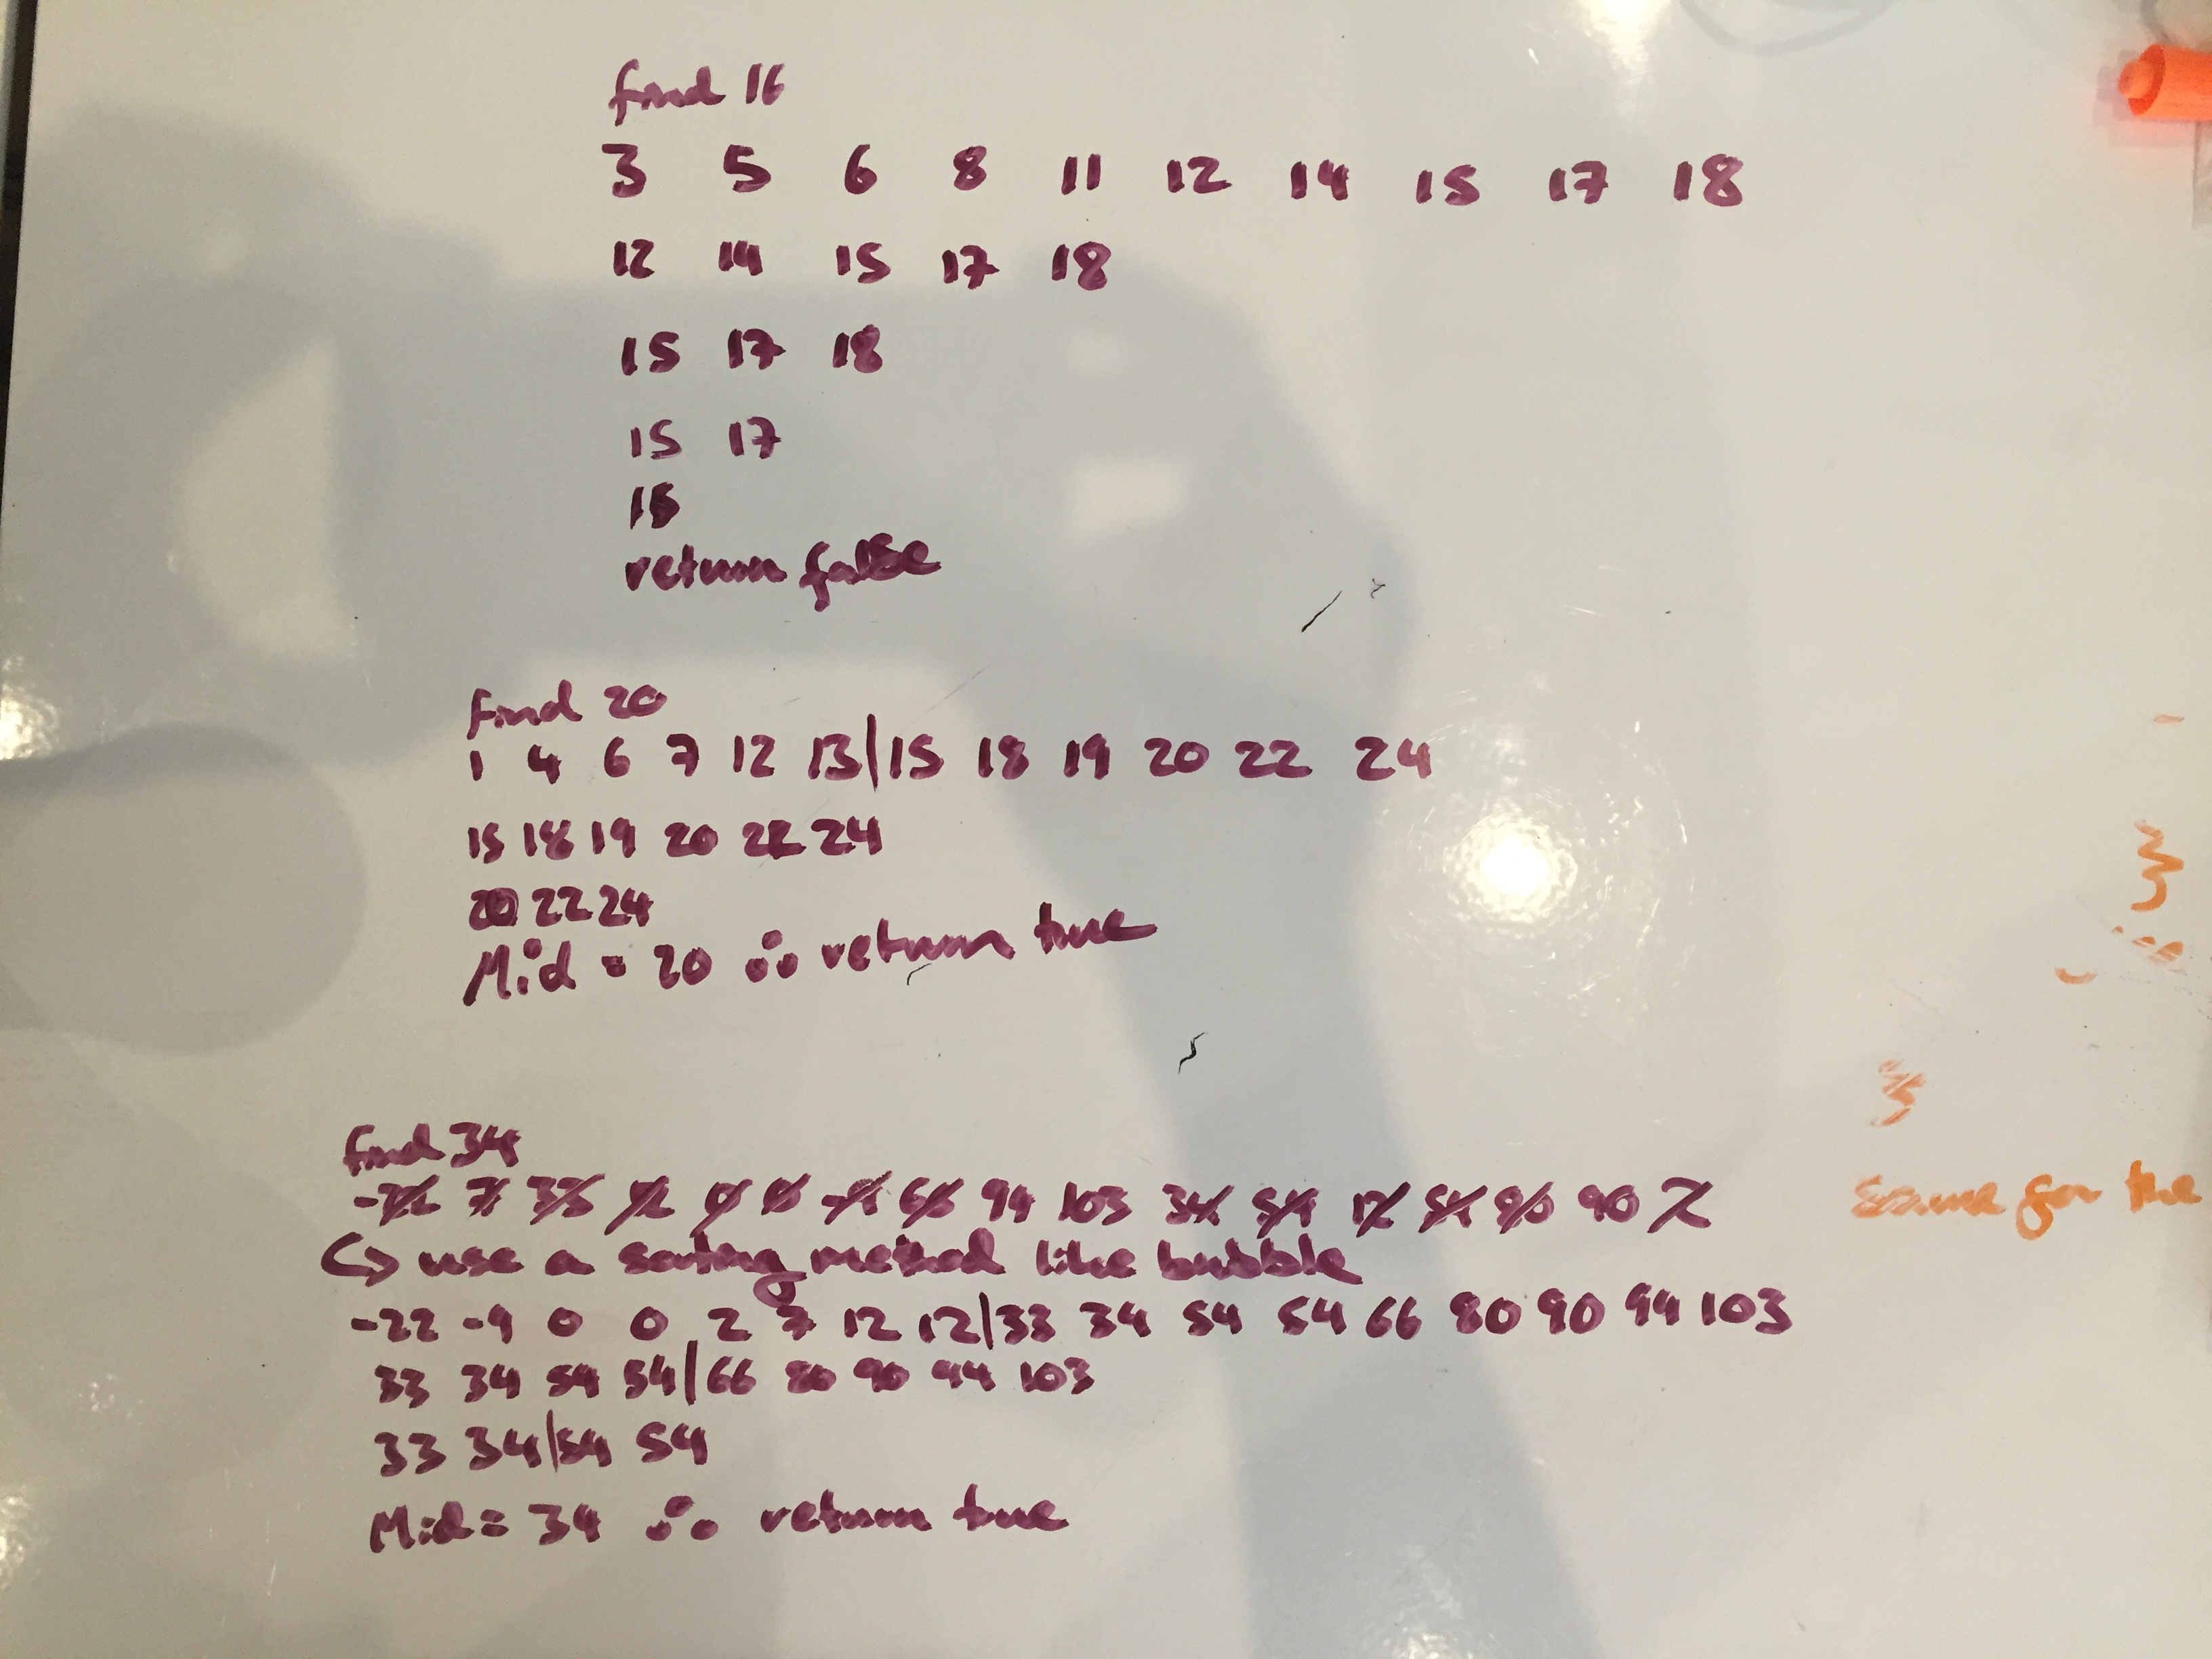 find 16
3 5 6 8 11 12 14 15 17 18
12 14 15 17 18
15 17 18
15 17
15
return false
find 20
1 4 6 7 12 13|15 18 19 20 22 24
15 18 19 20 22 24
20 22 24
Mid = 20 ∴ return true
find 34
0 0 66 94 103 34 54 12 54 90 2
use a sorting method like bubble
-22 -9 0 0 2 12 12|33 34 54 54 66 80 90 94 103
33 34 54 54|66 80 90 94 103
33 34|54 54
Mid = 34 ∴ return true
same for the